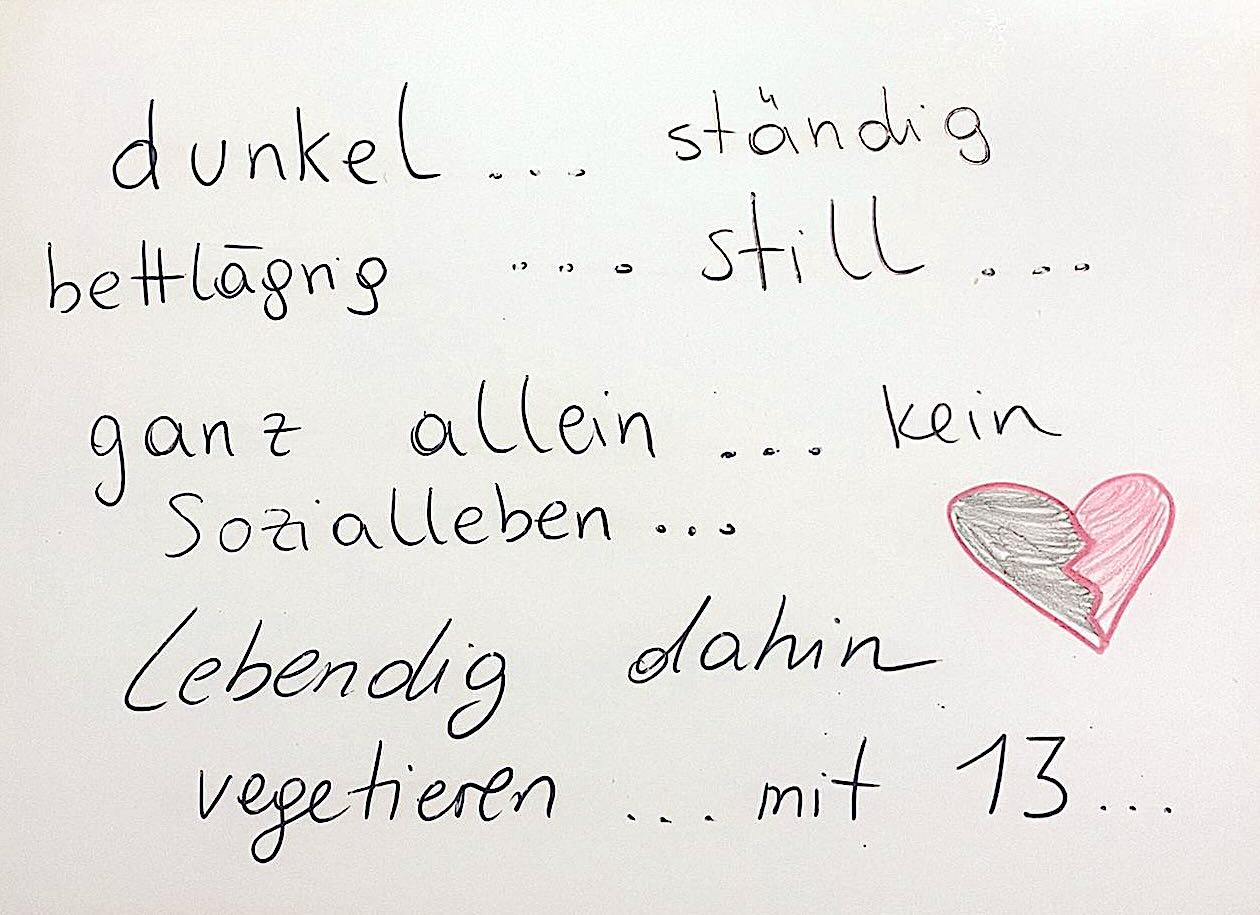 dunkel ... ständig
bettlägrig ... still ...
ganz allein ... kein
Sozialleben ...
Lebendig dahin
vegetieren ... mit 13 ...